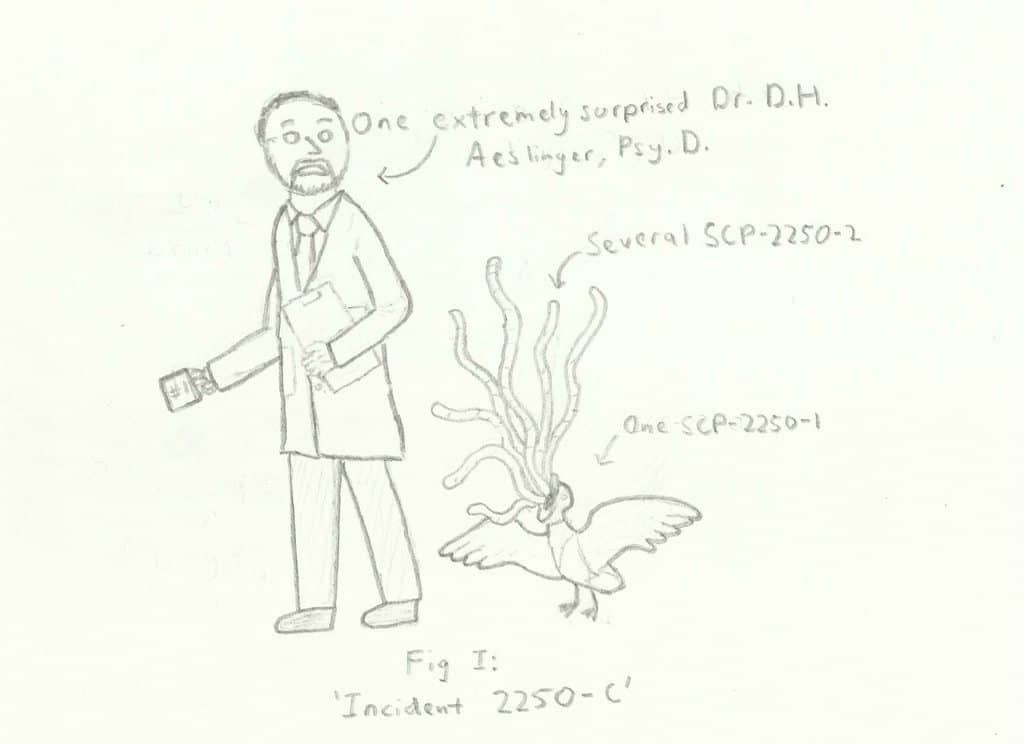 One extremely surprised Dr. D.H.
Aeslinger, Psy.D.
Several SCP-2250-2
#1
One SCP-2250-1
Fig I:
'Incident 2250-C'